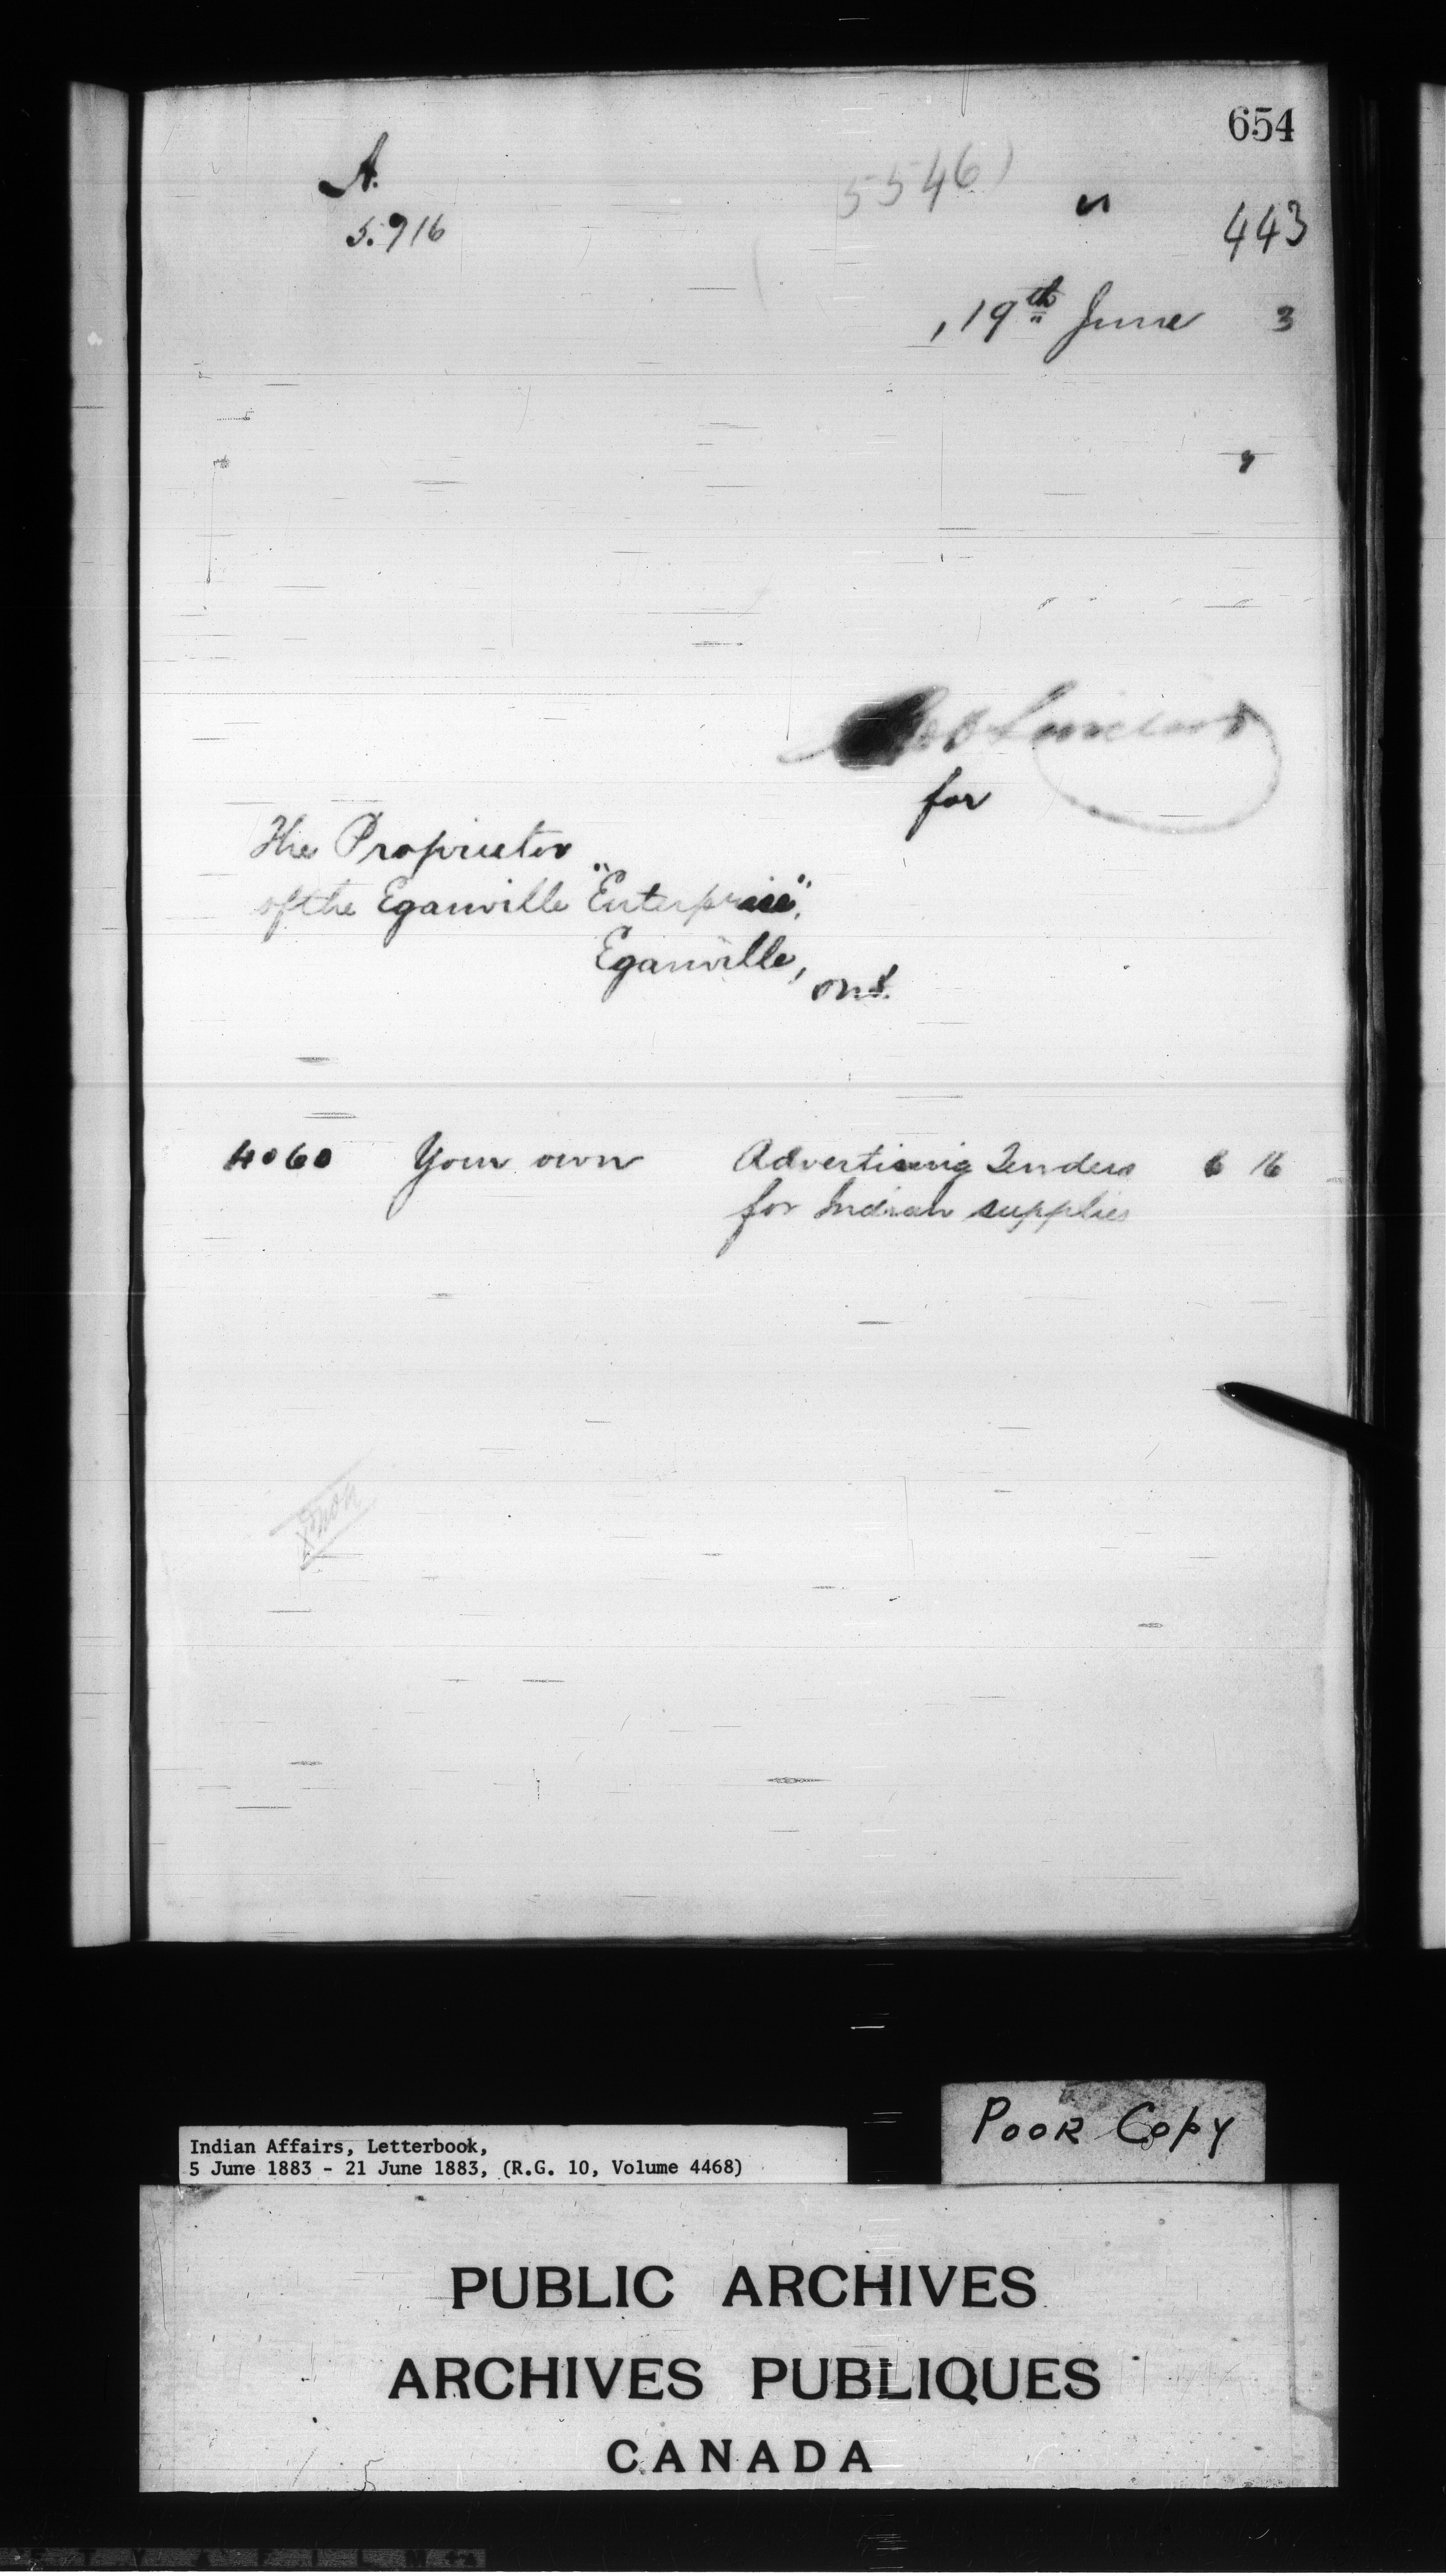 654
A.
5546)
"
443
5.916
, 19th June 3
for
The Proprietor
of the Eganville "Enterprise",
Eganville,
Ont.
4060 Your own Advertising Tenders 6 16
for Indian supplies
POOR COPY
Indian Affairs, Letterbook,
5 June 1883 - 21 June 1883, (R.G. 10, Volume 4468)
PUBLIC ARCHIVES
ARCHIVES PUBLIQUES
CANADA